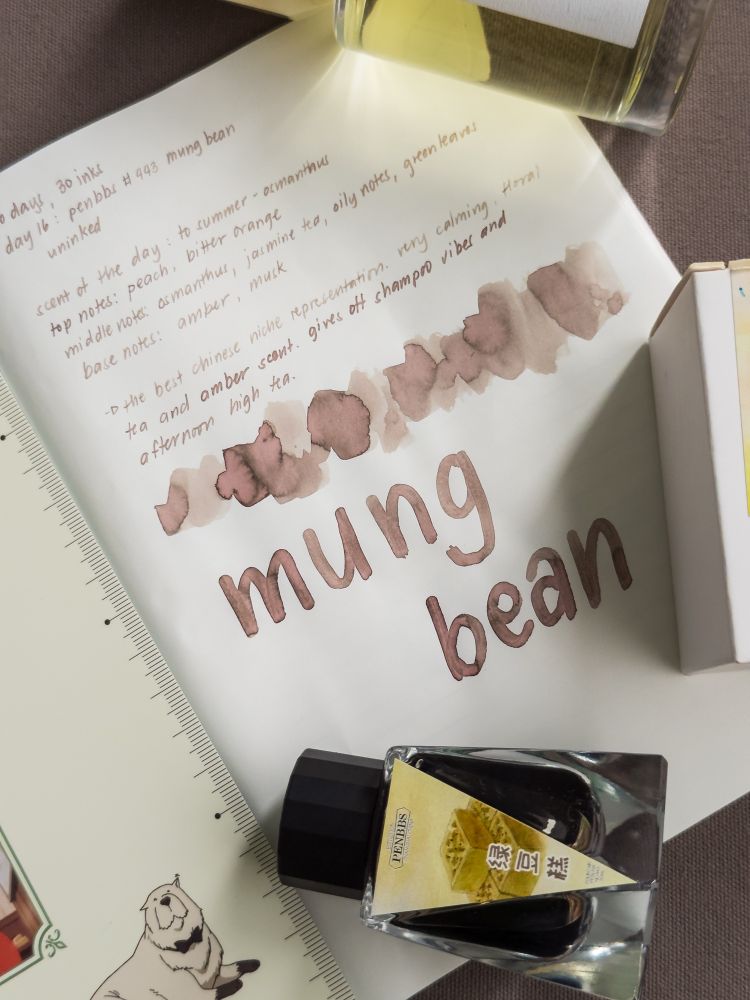 days, 30 inks
day 16: penbbs #443 mung bean
uninked
scent of the day: to summer - osmanthus
top notes: peach, bitter orange
middle notes: osmanthus, jasmine tea, oily notes, green leaves
base notes: amber, musk
→ the best chinese niche representation. very calming. floral
tea and amber scent. gives off shampoo vibes and
afternoon high tea.
mung
bean
PENBBS
绿豆糕